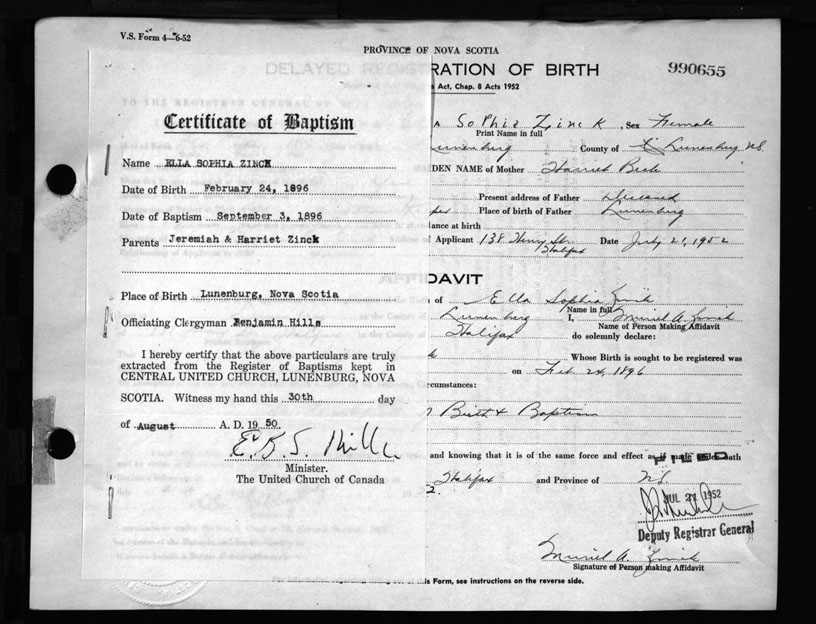 V.S. Form 4—6-52
PROVINCE OF NOVA SCOTIA
DELAYED REGISTRATION OF BIRTH
990655
Act, Chap. 8 Acts 1952
Certificate of Baptism
Name ELLA SOPHIA ZINCK
Date of Birth February 24, 1896
Date of Baptism September 3, 1896
Parents Jeremiah & Harriet Zinck
Place of Birth Lunenburg, Nova Scotia
Officiating Clergyman Benjamin Hills
I hereby certify that the above particulars are truly
extracted from the Register of Baptisms kept in
CENTRAL UNITED CHURCH, LUNENBURG, NOVA
SCOTIA. Witness my hand this 30th day
of August A. D. 19 50.
Minister.
The United Church of Canada
A Sophia Zinck, Sex Female
Print Name in full
unenburg County of Lunenburg N.S.
DEN NAME of Mother Harriet Beck
Present address of Father Deceased
Place of birth of Father Lunenburg
ance at birth
Applicant 138 Henry St. Halifax Date July 21, 1952
DAVIT
of Ella Sophia Zinck
Name in full
Lunenburg I, Muriel A. Zinck
Name of Person Making Affidavit
Halifax do solemnly declare:
Whose Birth is sought to be registered was
on Feb 24, 1896
rcumstances:
Birth & Baptism
and knowing that it is of the same force and effect as if made under oath
FILED
Halifax and Province of N.S.
2.
JUL 21 1952
Deputy Registrar General
Muriel A. Zinck
Signature of Person making Affidavit
is Form, see instructions on the reverse side.